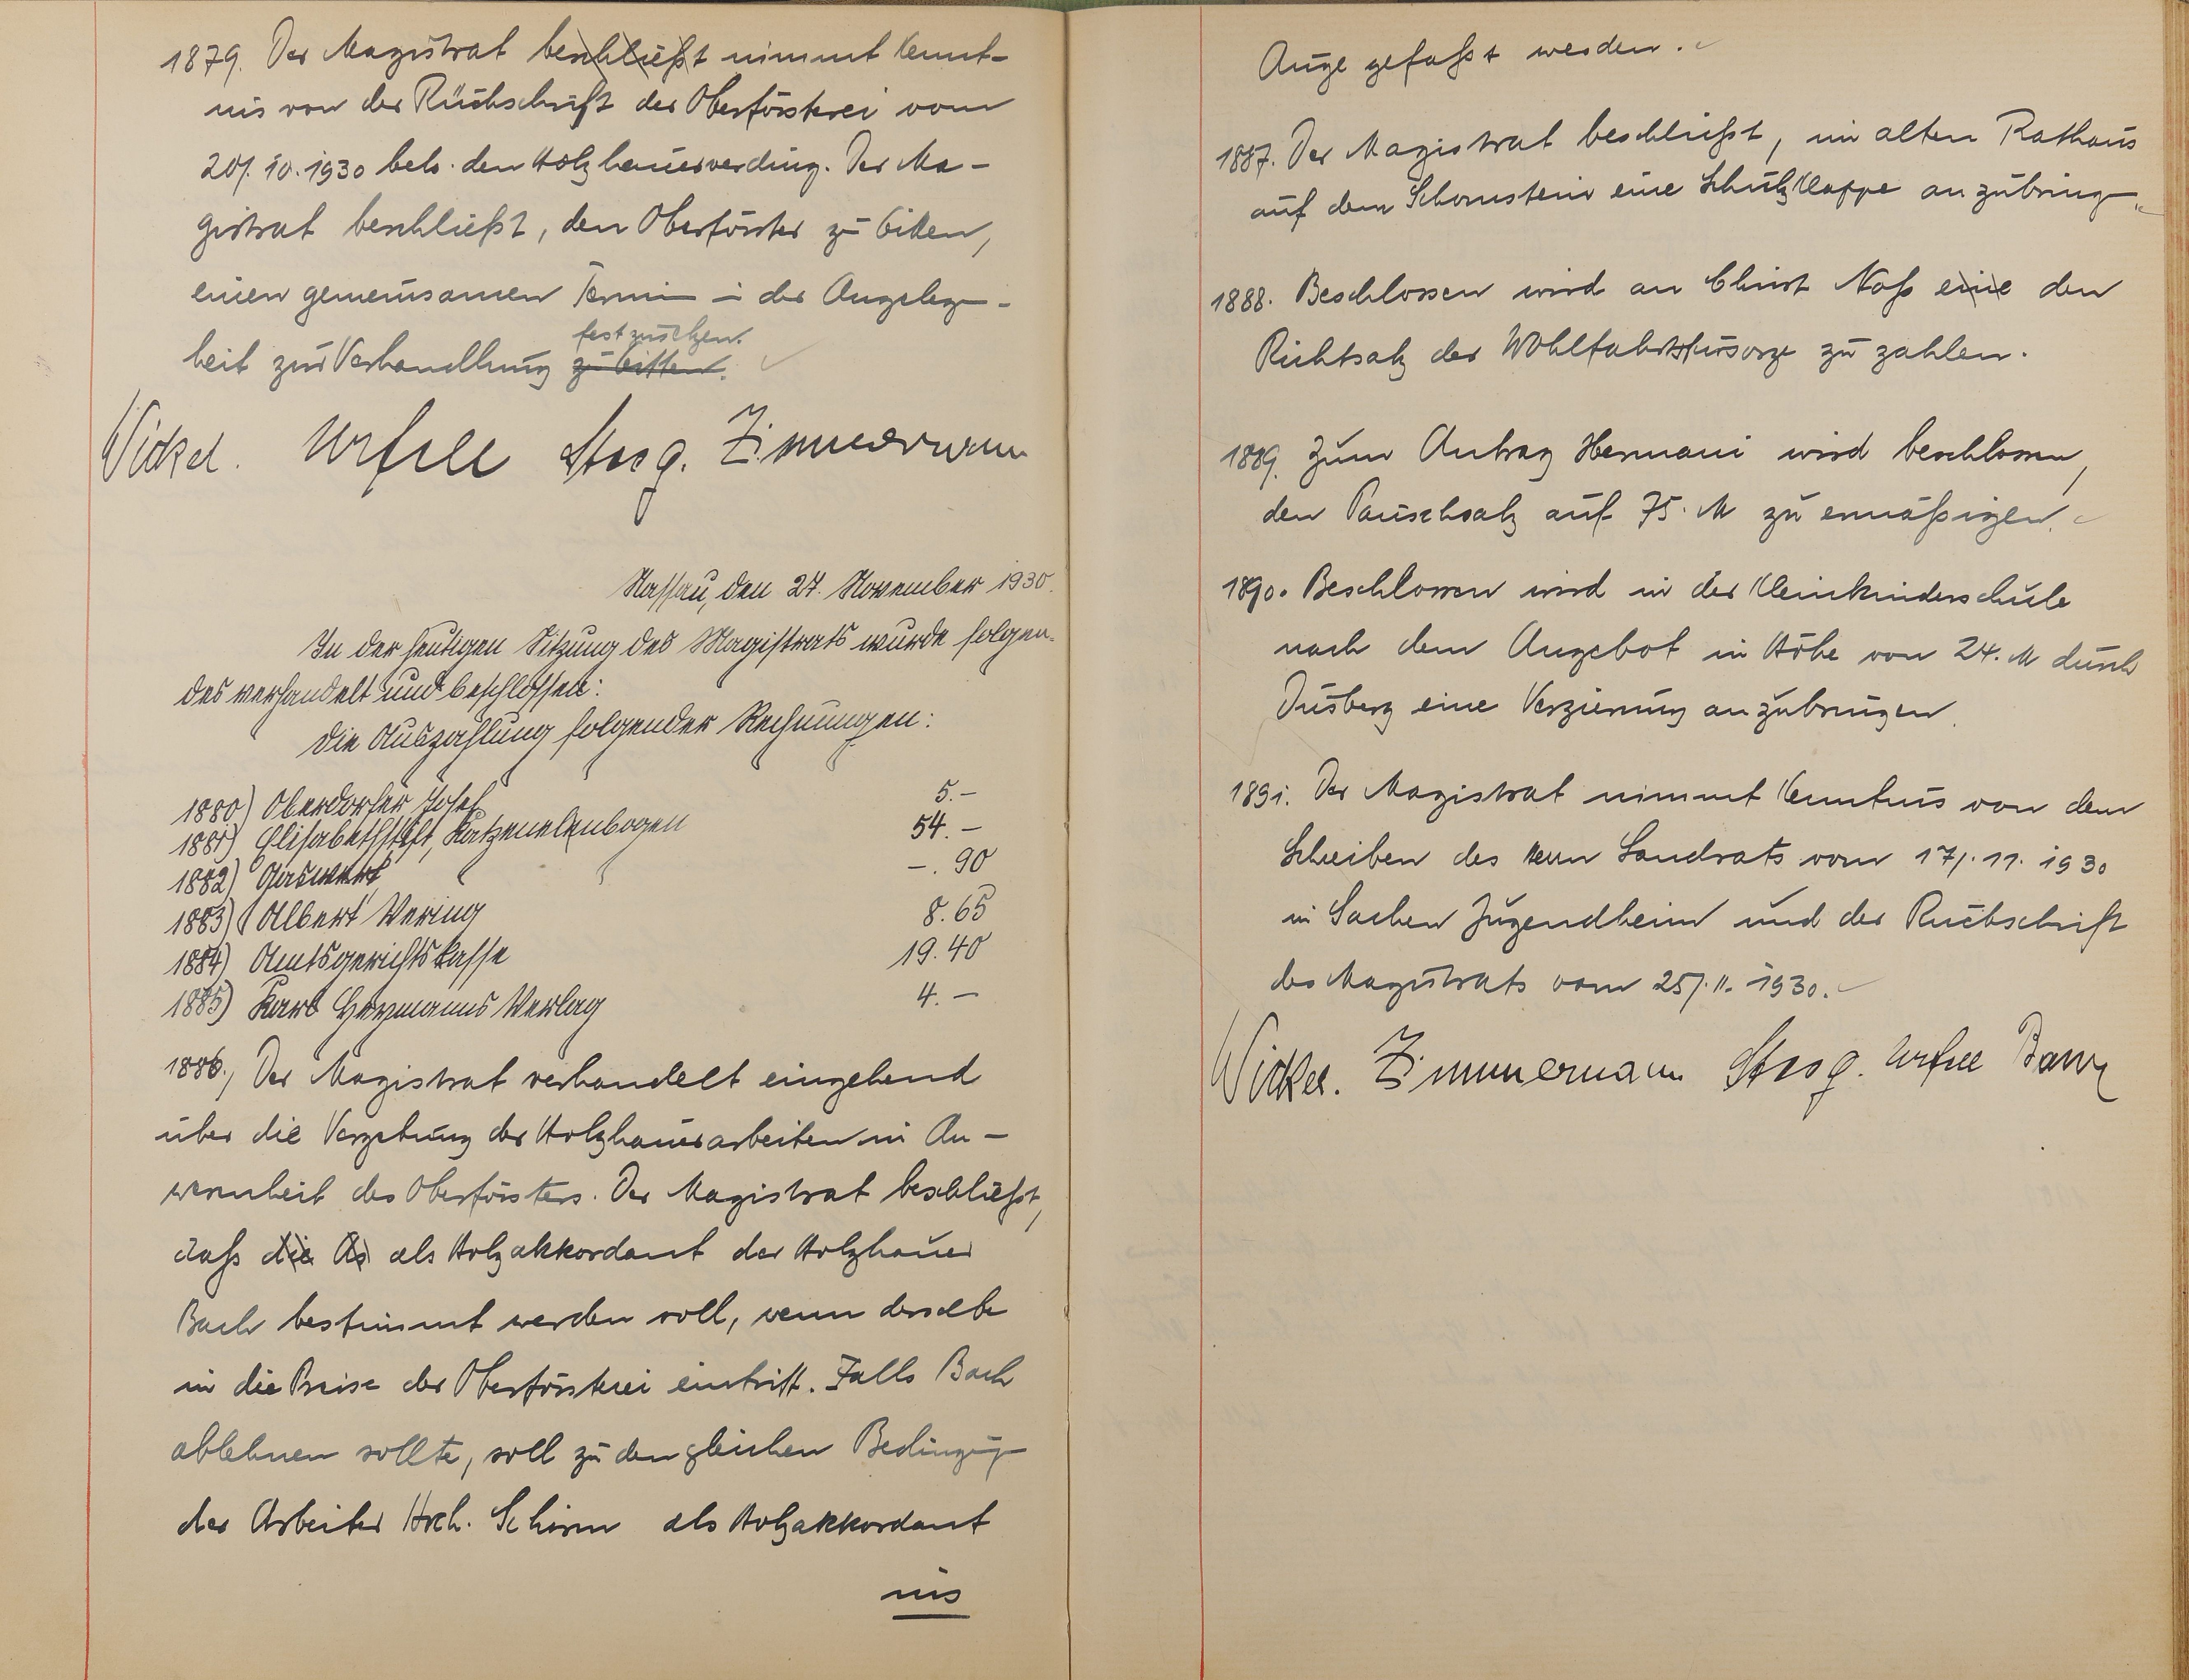 1879. Der Magistrat beschließt nimmt Kennt-
nis von der Rückschrift der Oberförsterei vom
20/. 10. 1930 betr. den Holzhauerverding. Der Ma-
gistrat beschließt, den Oberförster zu bitten,
einen gemeinsamen Termin in der Angelegen-
heit zur Verhandlung zu bitten. festzusetzen.
Zimmermann
Nassau, den 27. November 1930.
In der heutigen Sitzung des Magistrats wurde folgen-
des verhandelt und beschlossen:
Die Auszahlung folgender Rechnungen:
1880) Oberdorfer Josef 5.-
1881) Elisabethstift, Katzenelenbogen 54.-
1882) Gaswerk -.90
1883) Albert Wering 8.65
1884) Amtsgerichtskasse 19.40
1885) Karl Heymanns Verlag 4.-
1886., Der Magistrat verhandelt eingehend
über die Vergebung der Holzhauerarbeiten in An-
wesenheit des Oberförsters. Der Magistrat beschließt,
daß die als Holzakkordant der Holzhauer
Bach bestimmt werden soll, wenn derselbe
in die Preise der Oberförsterei eintritt. Falls Bach
ablehnen sollte, soll zu den gleichen Bedingungen
der Arbeiter Hrch. Schirm als Holzakkordant
ins
Auge gefaßt werden.
1887. Der Magistrat beschließt, im alten Rathaus
auf dem Schornstein eine Schutzklappe anzubringen.
1888. Beschlossen wird an Christ Naß eine den
Richtsatz der Wohlfahrtsfürsorge zu zahlen.
1889. Zum Antrag Hermani wird beschlossen,
den Pauschsatz auf 75. M zu ermäßigen.
1890. Beschlossen wird in der Kleinkinderschule
nach dem Angebot in Höhe von 24. M durch
Dusberg eine Verzierung anzubringen.
1891. Der Magistrat nimmt Kenntnis von dem
Schreiben des Herrn Landrats vom 17/. 11. 1930
in Sachen Jugendheim und der Rückschrift
des Magistrats vom 25/. 11. 1930.
Zimmermann